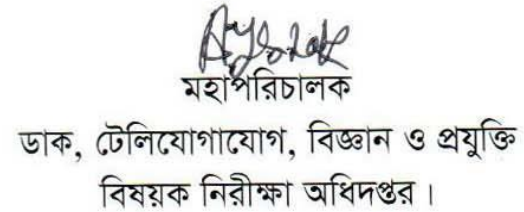 মহাপরিচালক
ডাক, টেলিযোগাযোগ, বিজ্ঞান ও প্রযুক্তি
বিষয়ক নিরীক্ষা অধিদপ্তর।